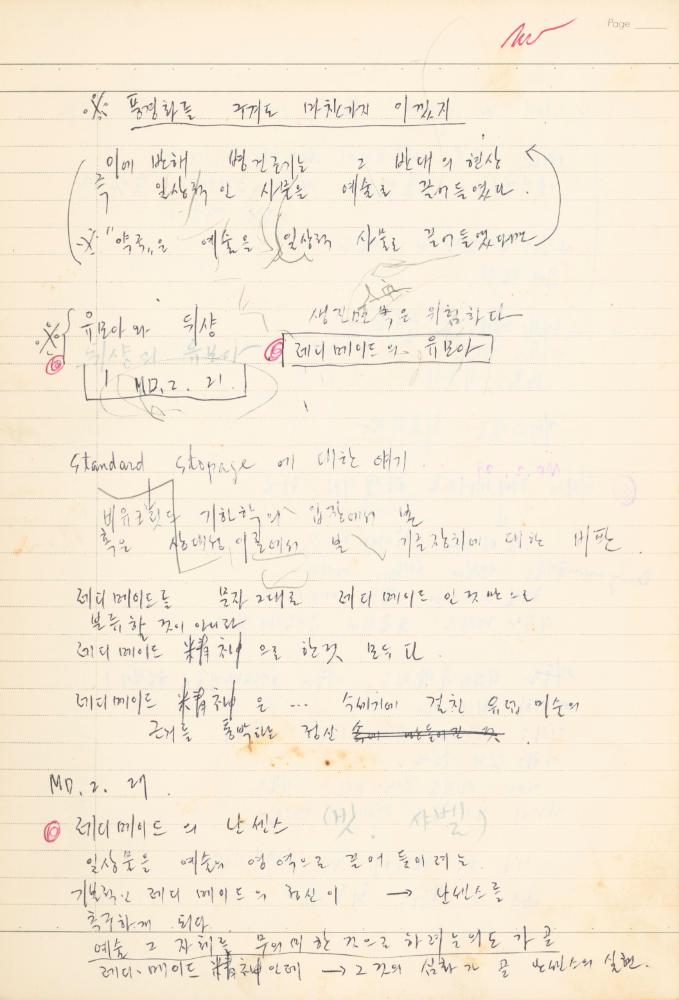 Page
※ 풍경화를 구겨도 마찬가지 이겠지
이에 반해 병건조기는 그 반대의 현상
즉 일상적인 사물을 예술로 끌어들였다.
※ "약국"은 예술을 일상적 사물로 끌어들였다면
※ 유모아와 뒤샹 생진면 혹은 위험하다
뒤샹의 유모아 레디메이드의 유모아
MD. 2. 21.
Standard Stopage 에 대한 얘기.
비유크릿드 기하학의 입장에서 본
혹은 상대성 이론에서 본 기준장치에 대한 비판.
레디메이드를 문자 그대로 레디메이드 인 것만으로
분류할 것이 아니라
레디메이드 精神 으로 한것 모두 다.
레디메이드 精神은 ... 수세기에 걸친 유럽 미술의
근거를 통박하는 정신
MD. 2. 21.
레디메이드의 난센스 (빗. 샤벨)
일상물을 예술의 영역으로 끌어 들이려는
기본적인 레디메이드의 정신이 → 난센스를
촉구하게 되다.
예술 그 자체를 무의미한 것으로 하려는 의도가 곧
레디·메이드 精神인데 → 그것의 심화가 곧 난센스의 실현.